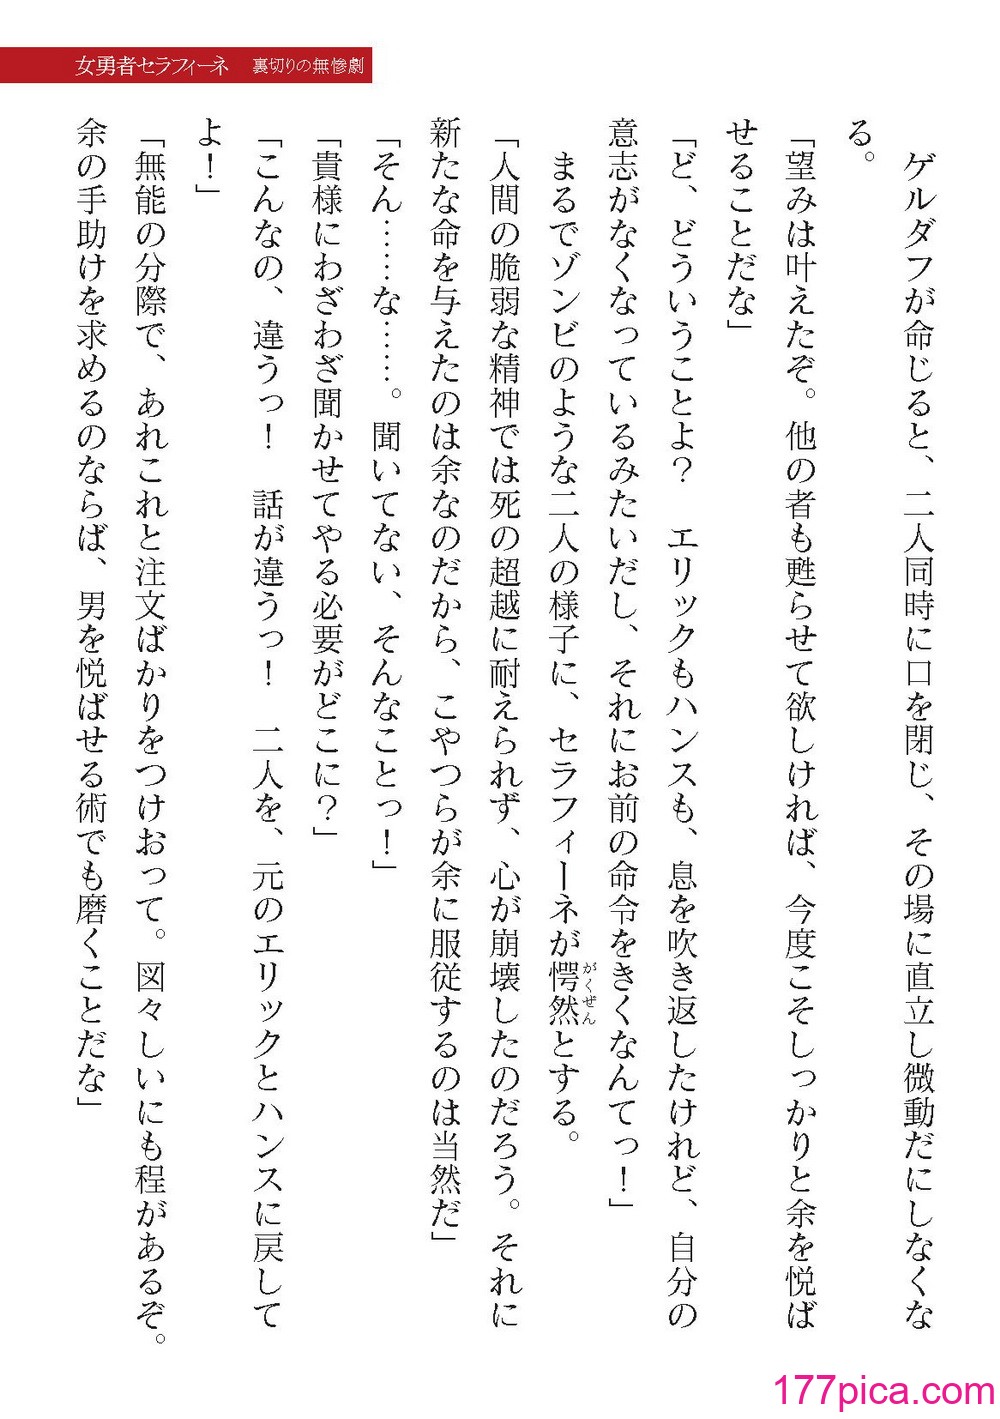 女勇者セラフィーネ 裏切りの無惨劇
ゲルダフが命じると、二人同時に口を閉じ、その場に直立し微動だにしなくな
る。
「望みは叶えたぞ。他の者も甦らせて欲しければ、今度こそしっかりと余を悦ば
せることだな」
「ど、どういうことよ？　エリックもハンスも、息を吹き返したけれど、自分の
意志がなくなっているみたいだし、それにお前の命令をきくなんてっ！」
まるでゾンビのような二人の様子に、セラフィーネが愕然とする。
がくぜん
「人間の脆弱な精神では死の超越に耐えられず、心が崩壊したのだろう。それに
新たな命を与えたのは余なのだから、こやつらが余に服従するのは当然だ」
「そん……な……。聞いてない、そんなことっ！」
「貴様にわざわざ聞かせてやる必要がどこに？」
「こんなの、違うっ！　話が違うっ！　二人を、元のエリックとハンスに戻して
よ！」
「無能の分際で、あれこれと注文ばかりをつけおって。図々しいにも程があるぞ。
余の手助けを求めるのならば、男を悦ばせる術でも磨くことだな」
177pica.com